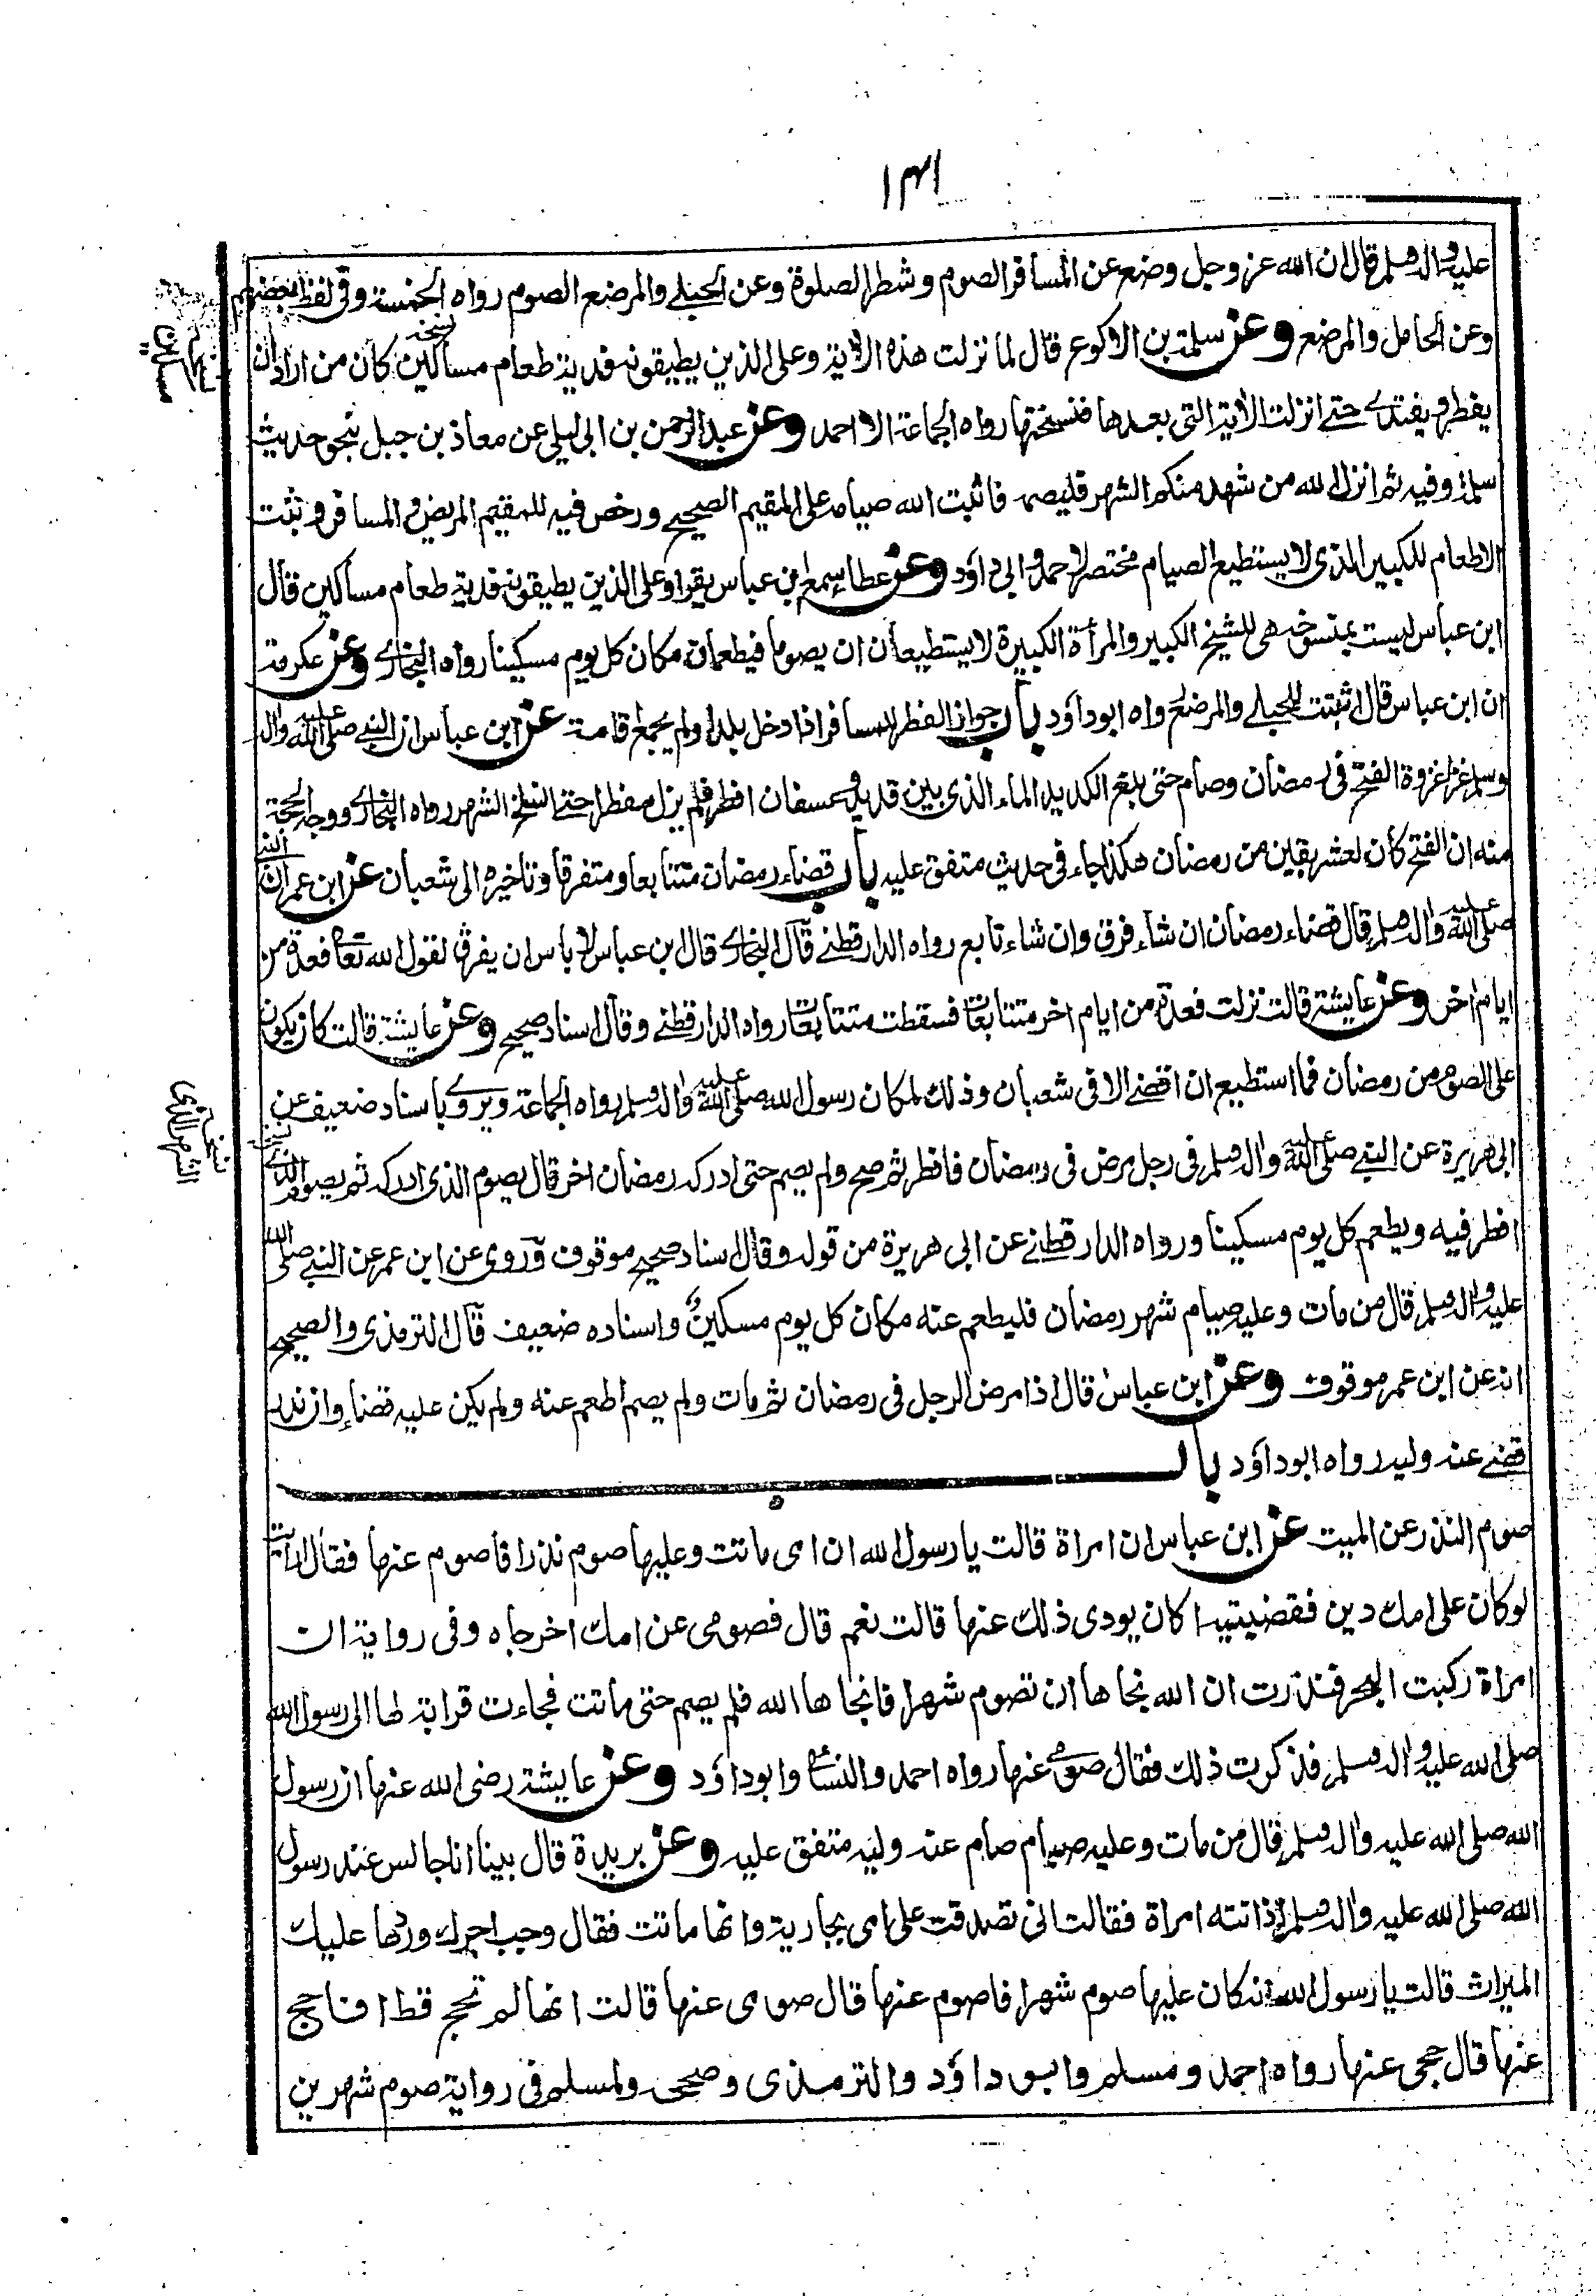 ١٣١
عليه واله وسلم قال ان الله عز وجل وضع عن المسافر الصوم وشطر الصلوة وعن الحبلے والمرضع الصوم رواه الخمسة وفی لفظ بعضهم
وعن الحامل والمرضع وعن سلمة بن الاكوع قال لما نزلت هذه الاٰية وعلى الذين يطيقونه فدية طعام مساكين كان من اراد ان
يفطر ويفتدے حتے انزلت الاٰية التی بعدها فنسختها رواه الجماعة الا احمد وعن عبد الرحمن بن ابی ليلی عن معاذ بن جبل بنحو حديث
سلمة وفيه ثم انزل الله من شهد منكم الشهر فليصمه فاثبت الله صيامه على المقيم الصحيح ورخص فيه للمقيم المريض والمسافر وثبت
الاطعام للكبير الذی لا يستطيع الصيام مختصر لاحمد وابی داؤد وعن عطاء سمع ابن عباس يقرا وعلى الذين يطيقونه فدية طعام مساكين قال
ابن عباس ليست بمنسوخه هی للشيخ الكبير والمرأة الكبيرة لا يستطيعان ان يصوما فيطعمان مكان كل يوم مسكينا رواه البخارے وعن عكرمة
ان ابن عباس قال اثبتت للحبلے والمرضع رواه ابو داؤد باب جواز الفطر للمسافر اذا دخل بلدا ولم يجمع اقامة عن ابن عباس ان النبے صلى الله عليه واله
وسلم غزا غزوة الفتح فی رمضان وصام حتى بلغ الكديد الماء الذی بين قديد وعسفان افطر فلم يزل مفطرا حتے انسلخ الشهر رواه البخارے ووجه الحجة
منه ان الفتح كان لعشر بقين من رمضان هكذا جاء فی حديث متفق عليه باب قضاء رمضان متتابعا ومتفرقا وتاخيره الى شعبان عن ابن عمر ان النبے
صلى الله عليه واله وسلم قال قضاء رمضان ان شاء فرق وان شاء تابع رواه الدارقطنے قال البخارے قال ابن عباس لا باس ان يفرق لقول الله تعالى فعدة من
ايام اخر وعن عايشة قالت نزلت فعدة من ايام اخر متتابعات فسقطت متتابعات رواه الدارقطنے وقال اسناد صحيح وعن عايشة قالت كان يكون
على الصوم من رمضان فما استطيع ان اقضے الا فی شعبان وذلك لمكان رسول الله صلى الله عليه واله وسلم رواه الجماعة ويروے باسناد ضعيف عن
ابی هريرة عن النبے صلى الله عليه واله وسلم فی رجل مرض فی رمضان فافطر ثم صح ولم يصم حتى ادركه رمضان اخر قال يصوم الذی ادركه ثم يصوم الذے
افطر فيه ويطعم كل يوم مسكينا ورواه الدارقطنے عن ابی هريرة من قوله وقال اسناد صحيح موقوف وروی عن ابن عمر عن النبے صلى الله
عليه واله وسلم قال من مات وعليه صيام شهر رمضان فليطعم عنه مكان كل يوم مسكين واسناده ضعيف قال الترمذی والصحيح
انه عن ابن عمر موقوف وعن ابن عباس قال اذا مرض الرجل فی رمضان ثم مات ولم يصم اطعم عنه ولم يكن عليه قضاء وان نذر
قضے عنه وليه رواه ابو داؤد باب
صوم النذر عن الميت عن ابن عباس ان امراة قالت يا رسول الله ان امی ماتت وعليها صوم نذر افاصوم عنها فقال ارأيت
لو كان على امك دين فقضيتيه اكان يودی ذلك عنها قالت نعم قال فصومی عن امك اخرجاه وفی رواية ان
امراة ركبت البحر فنذرت ان الله نجاها ان تصوم شهرا فانجاها الله فلم يصم حتى ماتت فجاءت قرابة لها الى رسول الله
صلى الله عليه واله وسلم فذكرت ذلك فقال صومے عنها رواه احمد والنسائے وابو داؤد وعن عايشة رضی الله عنها ان رسول
الله صلى الله عليه واله وسلم قال من مات وعليه صيام صام عنه وليه متفق عليه وعن بريدة قال بينا انا جالس عند رسول
الله صلى الله عليه واله وسلم اذ اتته امراة فقالت انی تصدقت على امی بجارية وانها ماتت فقال وجب اجرك وردها عليك
الميراث قالت يا رسول الله انه كان عليها صوم شهر افاصوم عنها قال صومی عنها قالت انها لم تحج قط افاحج
عنها قال حجی عنها رواه احمد ومسلم وابو داؤد والترمذی وصححه ولمسلم فی رواية صوم شهرين
نسخة الشهر الذی